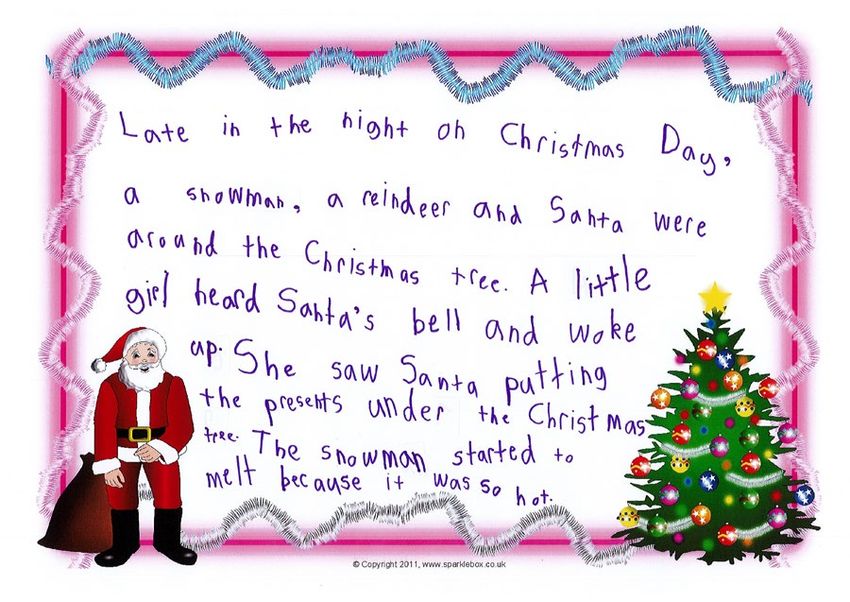 Late in the night on Christmas Day,
a snowman, a reindeer and Santa were
around the Christmas tree. A little
girl heard Santa's bell and woke
up. She saw Santa putting
the presents under the Christmas
tree. The snowman started to
melt because it was so hot.
© Copyright 2011, www.sparklebox.co.uk